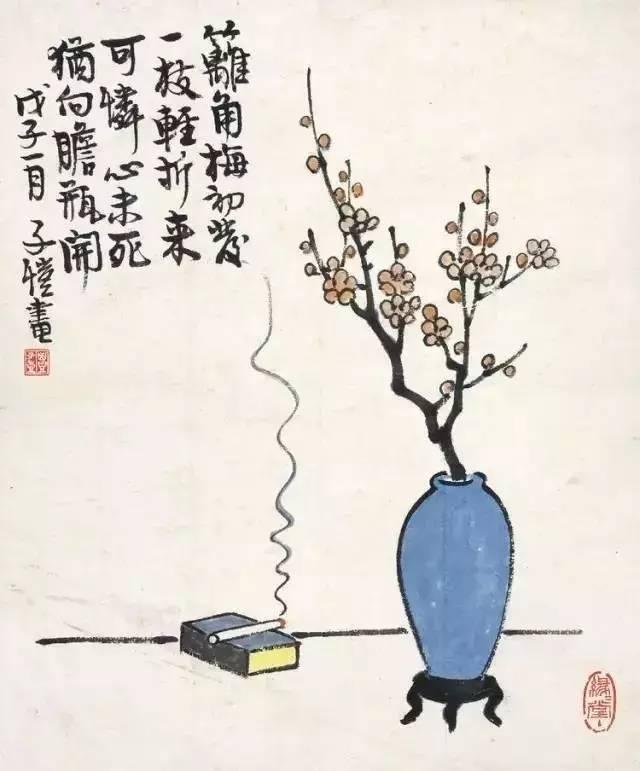 籬角梅初發
一枝輕折來
可憐心未死
猶向膽瓶開
戊子一月 子愷畫
緣〻堂